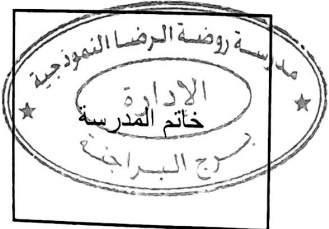 مدرسة روضة الرضا النموذجية
الادارة
خاتم المدرسة
برج البراجنة